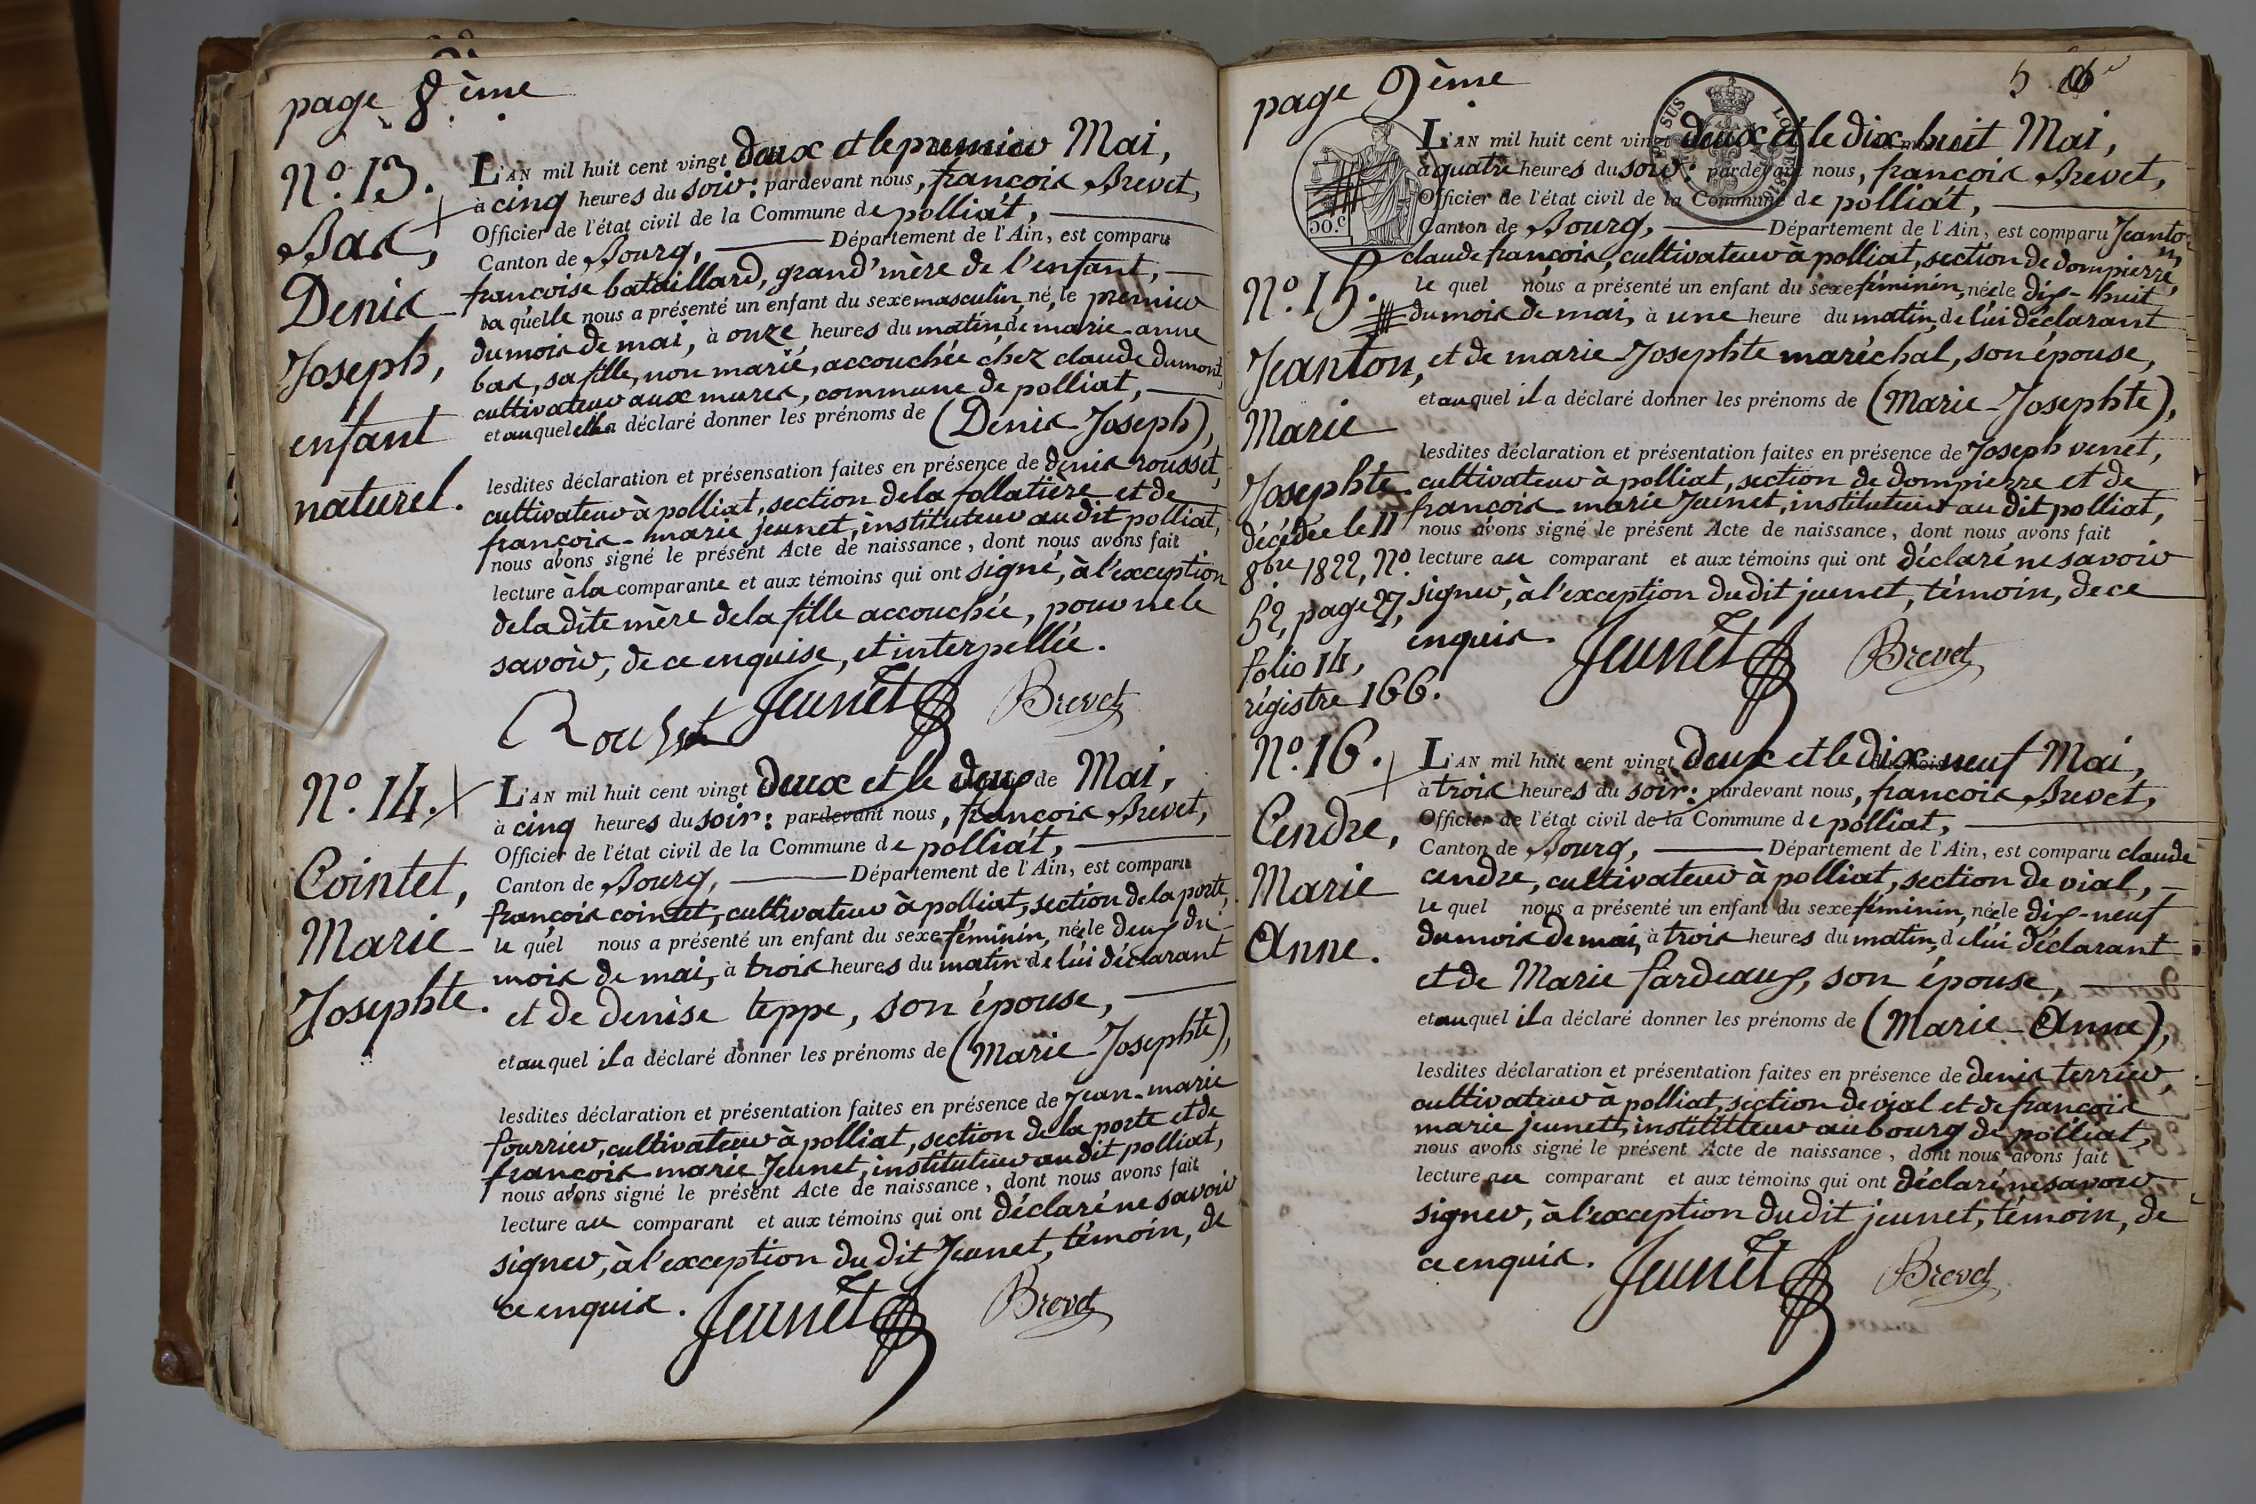 page 8ème
N.º 13.
Bas,
Denis
Joseph,
enfant
naturel.
L'AN mil huit cent vingt deux et le premier Mai,
à cinq heures du soir: pardevant nous, françois Brevet,
Officier de l'état civil de la Commune de polliat,
Canton de Bourg, Département de l'Ain, est comparu
françoise bataillard, grand'mère de l'enfant,
la quelle nous a présenté un enfant du sexe masculin, né, le premier
du mois de mai, à onze heures du matin, de marie-anne
bas, sa fille, non marié, accouchée chez claude dumont,
cultivateur aux mures, commune de polliat,
et auquel elle a déclaré donner les prénoms de (Denis-Joseph),
lesdites déclaration et présensation faites en présence de denis rousset,
cultivateur à polliat, section de la follatière et de
françois-marie jeunet, instituteur au dit polliat,
nous avons signé le présent Acte de naissance, dont nous avons fait
lecture à la comparante et aux témoins qui ont signé, à l'exception
de la dite mère de la fille accouchée, pour ne le
savoir, de ce enquise, et interpellée.
Jeunet Brevet
N.º 14.
Cointet,
Marie-
Josephte.
L'AN mil huit cent vingt deux et le deux de Mai,
à cinq heures du soir: pardevant nous, françois Brevet,
Officier de l'état civil de la Commune de polliat,
Canton de Bourg, Département de l'Ain, est comparu
françois cointet, cultivateur à polliat, section de la porte,
le quel nous a présenté un enfant du sexe féminin, née le deux du
mois de mai, à trois heures du matin de lui déclarant
et de denise teppe, son épouse,
et auquel il a déclaré donner les prénoms de (Marie-Josephte),
lesdites déclaration et présentation faites en présence de Jean-marie
fourrier, cultivateur à polliat, section de la porte et de
françois-marie Jeunet, instituteur au dit polliat,
nous avons signé le présent Acte de naissance, dont nous avons fait
lecture au comparant et aux témoins qui ont déclaré ne savoir
signer, à l'exception du dit Jeunet, témoin, de
ce enquis. Jeunet Brevet
page 9ème
5
N.º 15.
Jeanton,
Marie
Josephte
décédée le 11
8bre 1822, N.º
52, page 27,
folio 14,
régistre 166.
L'AN mil huit cent vingt deux et le dix huit Mai,
à quatre heures du soir: pardevant nous, françois Brevet,
Officier de l'état civil de la Commune de polliat,
Canton de Bourg, Département de l'Ain, est comparu Jeanton
claude françois, cultivateur à polliat, section de dompierre,
le quel nous a présenté un enfant du sexe féminin, née le dix-huit
du mois de mai, à une heure du matin, de lui déclarant
et de marie-Josephte maréchal, son épouse,
et auquel il a déclaré donner les prénoms de (Marie-Josephte),
lesdites déclaration et présentation faites en présence de Joseph venet,
cultivateur à polliat, section de dompierre et de
françois-marie Jeunet, instituteur au dit polliat,
nous avons signé le présent Acte de naissance, dont nous avons fait
lecture au comparant et aux témoins qui ont déclaré ne savoir
signer, à l'exception du dit jeunet, témoin, de ce
enquis. Jeunet Brevet
N.º 16.
Cendre,
Marie
Anne.
L'AN mil huit cent vingt deux et le dix neuf Mai,
à trois heures du soir: pardevant nous, françois Brevet,
Officier de l'état civil de la Commune de polliat,
Canton de Bourg, Département de l'Ain, est comparu claude
cendre, cultivateur à polliat, section de vial,
le quel nous a présenté un enfant du sexe féminin, née le dix-neuf
du mois de mai, à trois heures du matin, de lui déclarant
et de Marie fardeaux, son épouse,
et auquel il a déclaré donner les prénoms de (Marie-Anne),
lesdites déclaration et présentation faites en présence de denis terrier,
cultivateur à polliat, section de vial et de françois
marie jeunett, instititteur au bourg de polliat,
nous avons signé le présent Acte de naissance, dont nous avons fait
lecture au comparant et aux témoins qui ont déclaré ne savoir
signer, à l'exception du dit jeunet, témoin, de
ce enquis. Jeunet Brevet